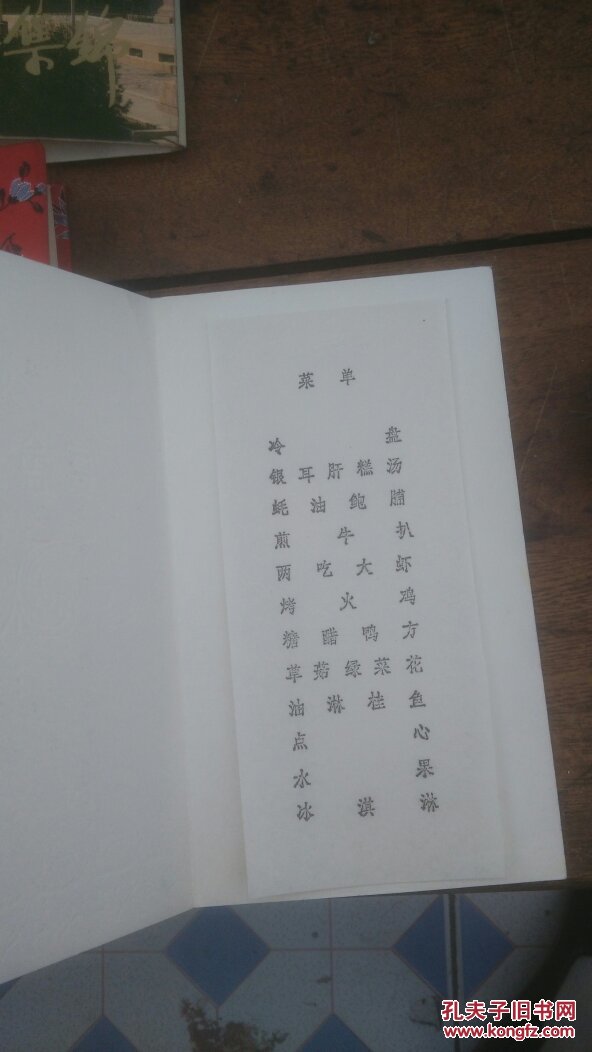 集锦
菜单
冷盘
银耳肝糕汤
蚝油鲍脯
煎牛扒
两吃大虾
烤火鸡
糖醋鸭方
草菇绿菜花
油淋桂鱼
点心
水果
冰淇淋
孔夫子旧书网
www.kongfz.com